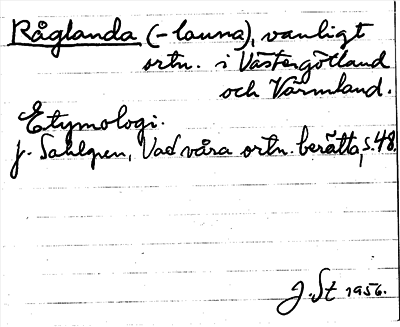 Råglanda (-launa), vanligt
ortn. i Västergötland
och Värmland.
Etymologi.
J. Sahlgren, Vad våra ortn. berätta, s. 48.
J. St 1956.